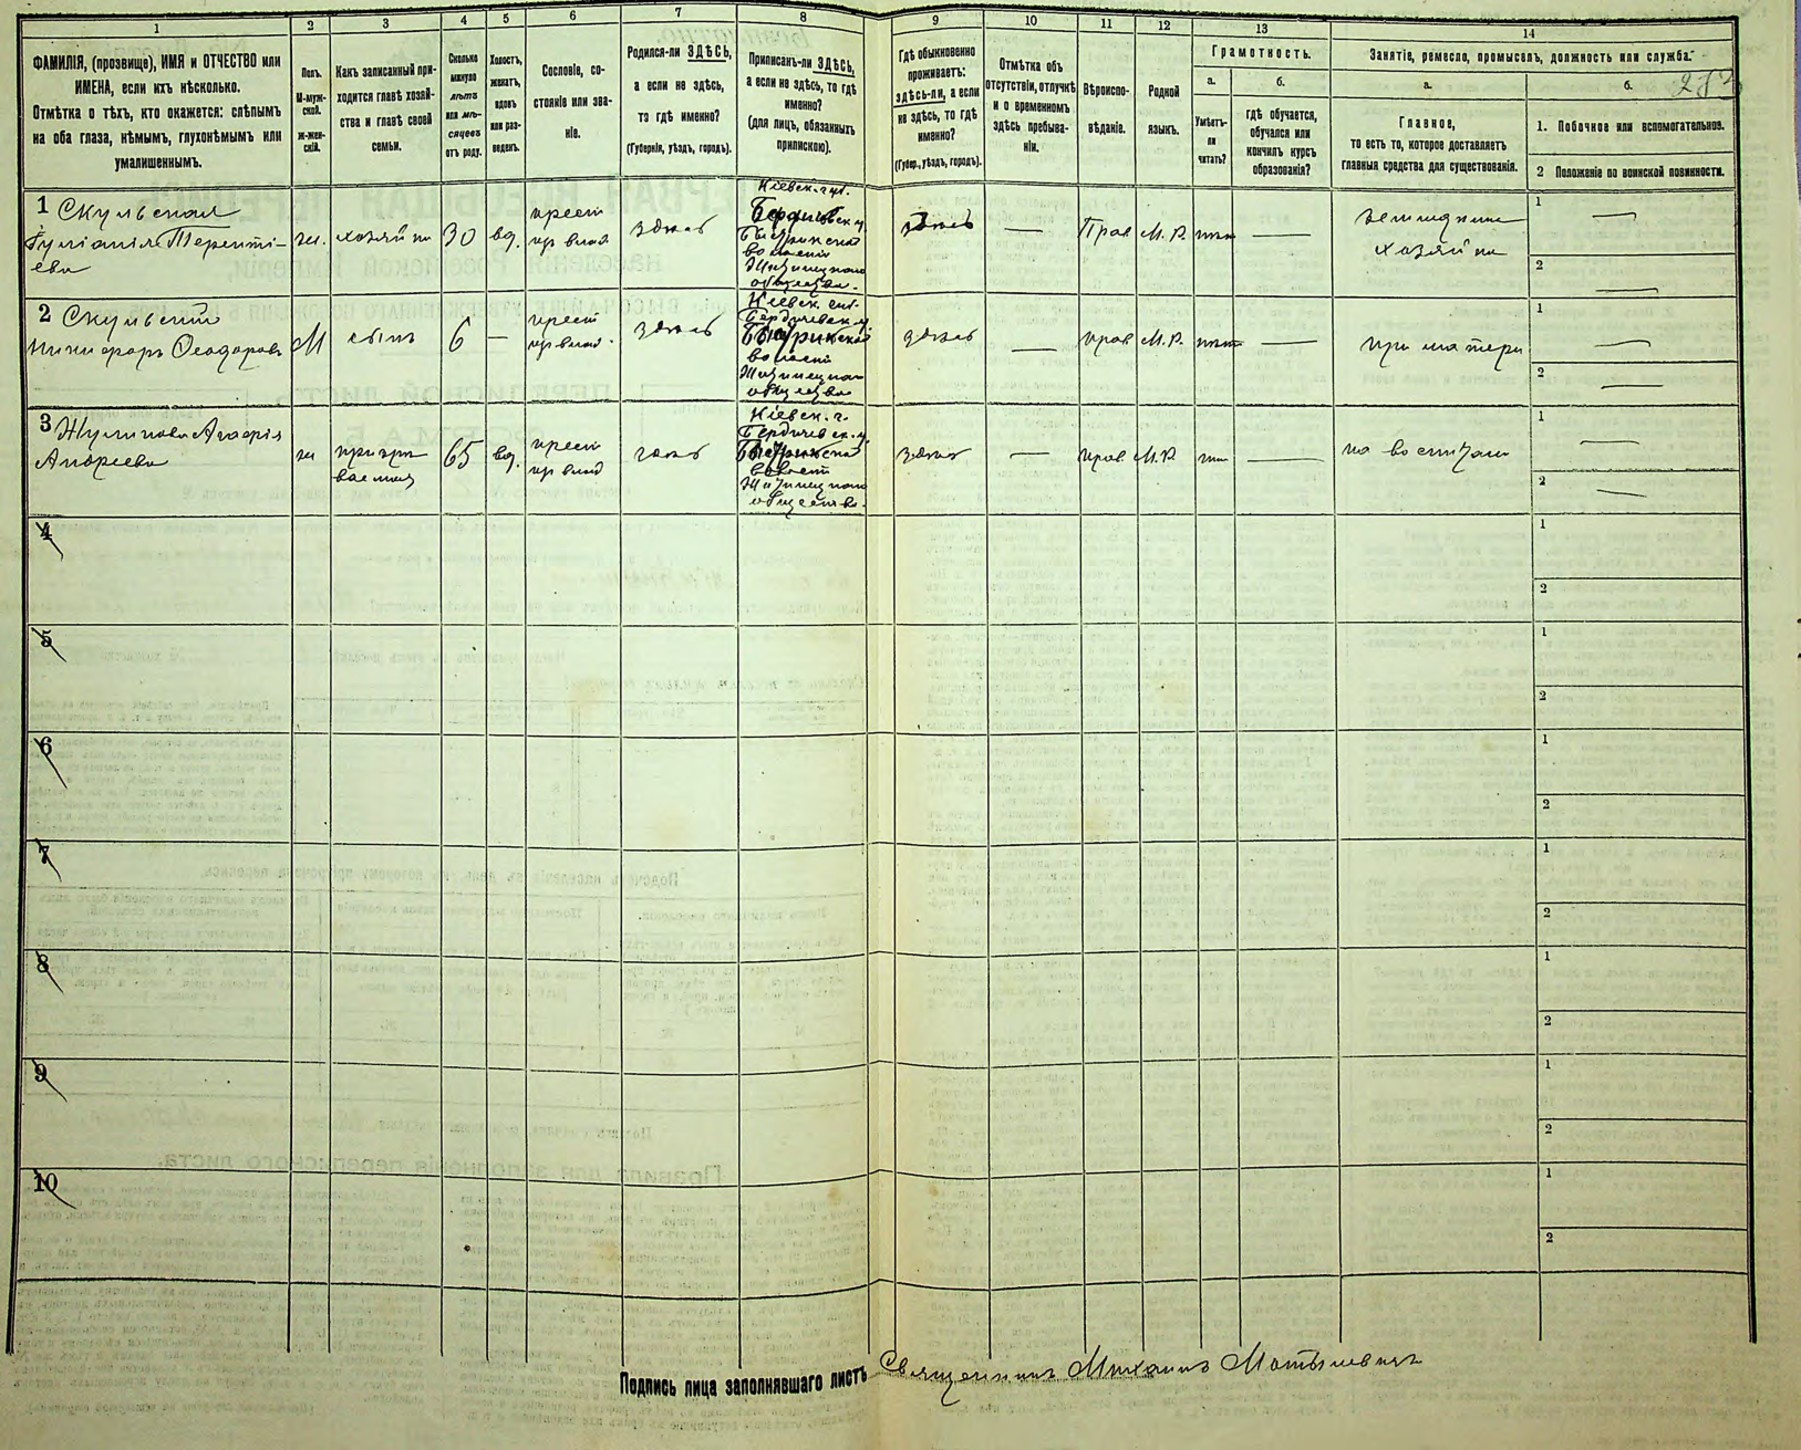 1
2
3
4
5
6
7
8
9
10
11
12
13
14
ФАМИЛІЯ, (прозвище), ИМЯ и ОТЧЕСТВО или
ИМЕНА, если ихъ нѣсколько.
Отмѣтка о тѣхъ, кто окажется: слѣпымъ
на оба глаза, нѣмымъ, глухонѣмымъ или
умалишеннымъ.
Полъ.
М-муж-
ской.
ж-жен-
скій.
Какъ записанный при-
ходится главѣ хозяй-
ства и главѣ своей
семьи.
Сколько
минуло
лѣтъ
или мѣ-
сяцевъ
отъ роду.
Холостъ,
женатъ,
вдовъ
или раз-
веденъ.
Сословіе, со-
стояніе или зва-
ніе.
Родился-ли ЗДѢСЬ,
а если не здѣсь,
то гдѣ именно?
(Губернія, уѣздъ, городъ).
Приписанъ-ли ЗДѢСЬ,
а если не здѣсь, то гдѣ
именно?
(для лицъ, обязанныхъ
припискою).
Гдѣ обыкновенно
проживаетъ:
здѣсь-ли, а если
не здѣсь, то гдѣ
именно?
(Губер., уѣздъ, городъ).
Отмѣтка объ
отсутствіи, отлучкѣ
и о временномъ
здѣсь пребыва-
ніи.
Вѣроиспо-
вѣданіе.
Родной
языкъ.
Грамотность.
а.
Умѣетъ-
ли
читать?
б.
гдѣ обучается,
обучался или
кончилъ курсъ
образованія?
Занятіе, ремесло, промыселъ, должность или служба.
а.
Главное,
то есть то, которое доставляетъ
главныя средства для существованія.
б.
1. Побочное или вспомогательное.
2 Положеніе по воинской повинности.
1 Скульская
Терентi-
ева
ж.
хозяйка
30
вд.
крест
изъ влад
здѣсь
Кіевск. губ.
Бердичевск у.
волости
общества.
здѣсь
—
Прав
М. Р.
нѣтъ
—
хозяйка
1 —
2 —
2 Скульскій
Никифоръ Ѳеодоровъ
М
сынъ
6
—
крест
изъ влад.
здѣсь
Кіевск. губ.
Бердичевск у.
волости
общества
здѣсь
—
прав
М. Р.
нѣтъ
—
при матери
1 —
2 —
3
Андреева
ж
65
вд.
крест
изъ влад
здѣсь
Кіевск. г.
Бердичевск. у.
волости
общества.
здѣсь
—
прав.
М. Р.
нѣтъ
—
1 —
2 —
4
1
2
5
1
2
6
1
2
7
1
2
8
1
2
9
1
2
10
1
2
Подпись лица заполнявшаго листъ Священникъ Михаилъ